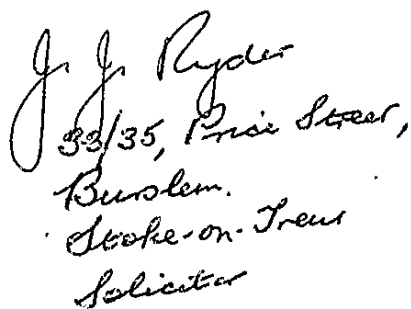 J. J. Ryder
33/35, Price Street,
Burslem.
Stoke-on-Trent
Solicitor